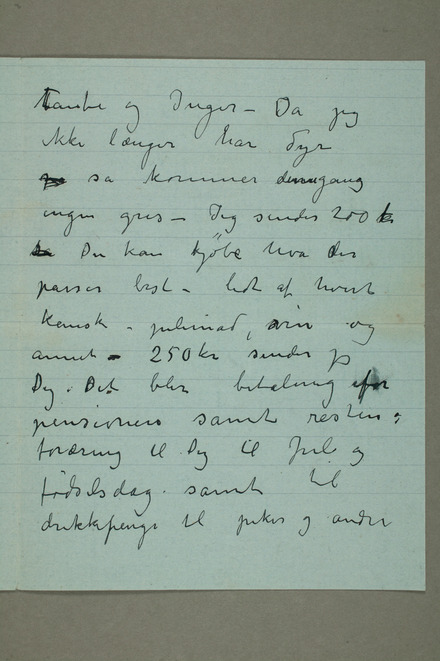 Tante og Inger – Da jeg
ikke længer har Dyr
så kommer denngang
ingen gris – Jeg sender 200 kr
Du kan kjöbe hva der
passer best – lidt af hvert
kansk – julemad, vin og
annet – 250 kr sender jeg
Dig. Det blir betaling for
pensionen samt resten :
foræring til Dig til Jul og
fødselsdag. samt til
drikkepenge til piker og andre